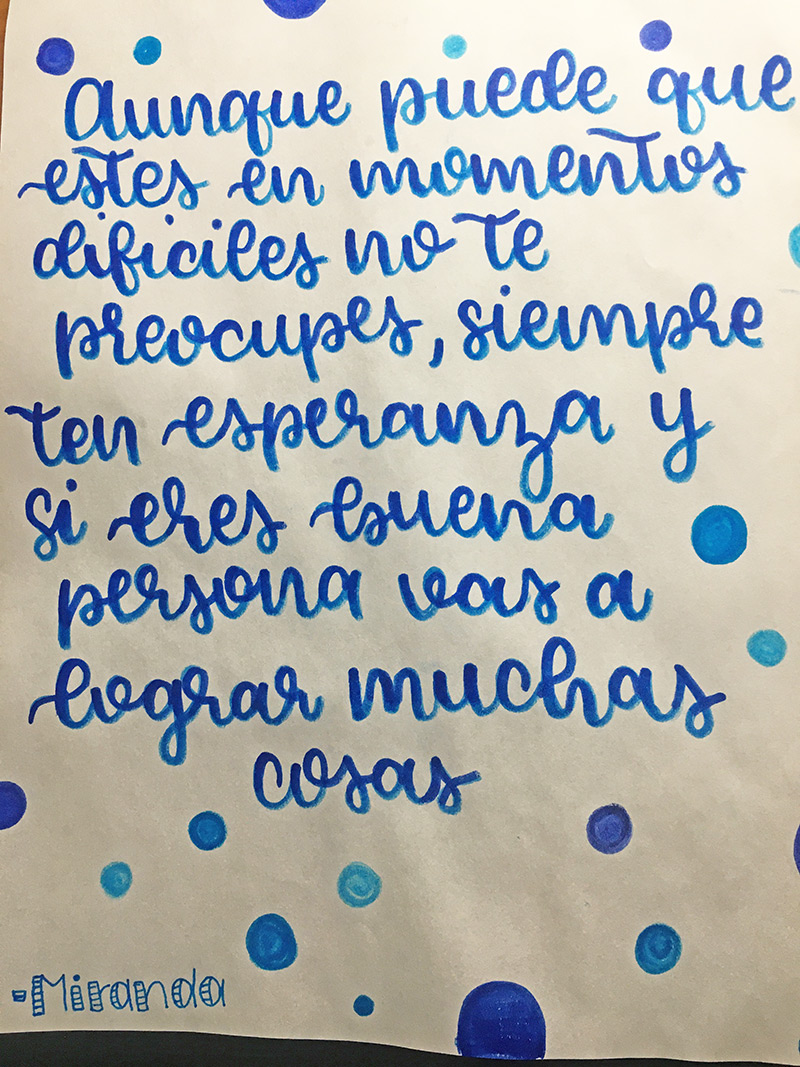 Aunque puede que
estes en momentos
dificiles no te
preocupes, siempre
ten esperanza y
si eres buena
persona vas a
lograr muchas
cosas
-Miranda